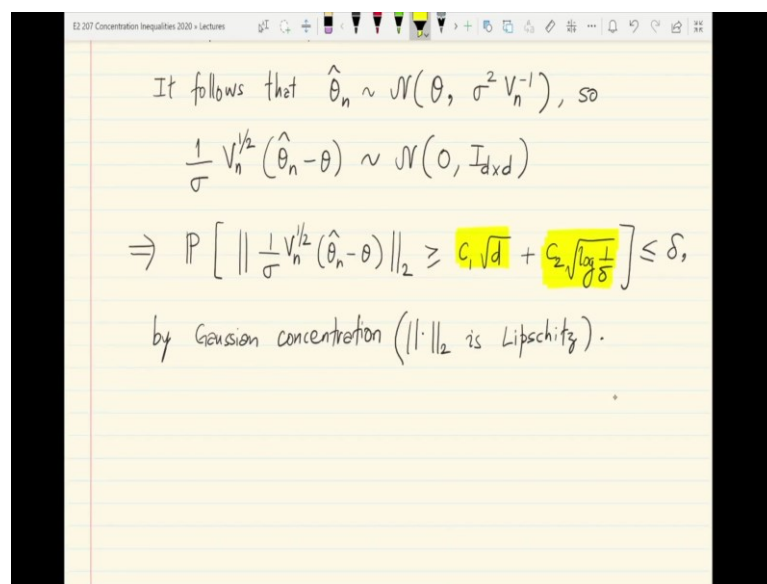 E2 207 Concentration Inequalities 2020 » Lectures
It follows that θ̂ₙ ~ N(θ, σ² Vₙ⁻¹), so
1/σ Vₙ^{1/2} (θ̂ₙ - θ) ~ N(0, I_{d×d})
⇒ P[ || 1/σ Vₙ^{1/2} (θ̂ₙ - θ) ||₂ ≥ C₁√d + C₂√(log 1/δ) ] ≤ δ,
by Gaussian concentration (||·||₂ is Lipschitz).